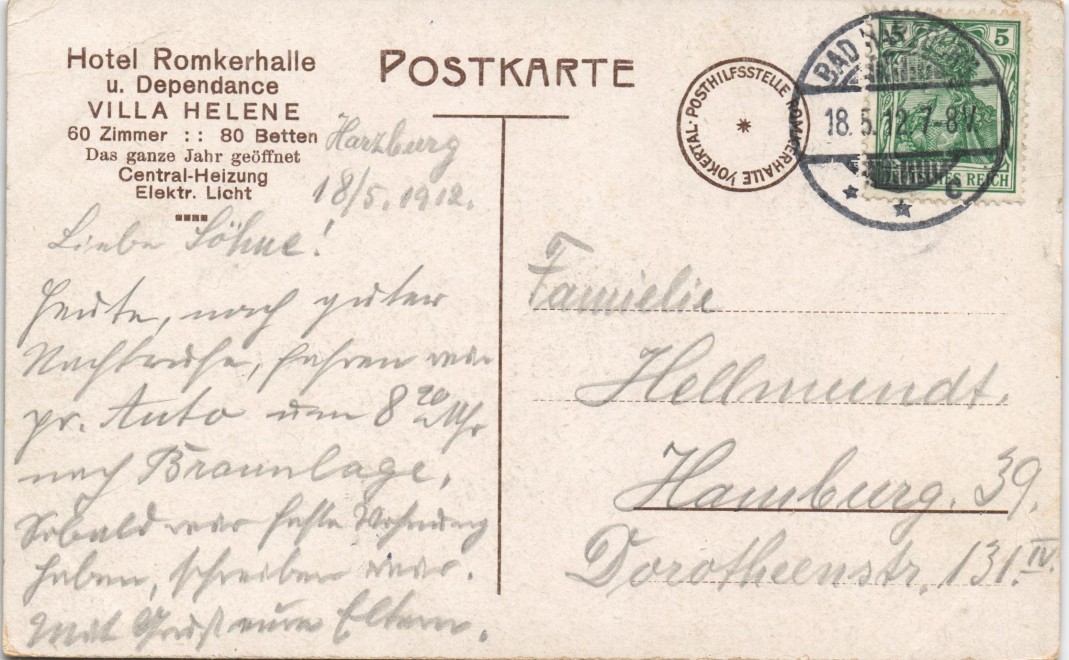 Hotel Romkerhalle
u. Dependance
VILLA HELENE
60 Zimmer :: 80 Betten
Das ganze Jahr geöffnet
Central-Heizung
Elektr. Licht
POSTKARTE
POSTHILFSSTELLE ROMKERHALLE /OKERTAL·
BAD HARZBURG
18.5.12.7-8V.
c.
5 5
DEUTSCHES REICH
Harzburg
18/5.1912.
Liebe Söhne!
Heute, nach guter
Nachtruhe, fahren wir
pr. Auto um 8 20 Uhr
nach Braunlage.
Sobald wir feste Wohnung
haben, schreiben wir.
Mit Gruß eure Eltern.
Familie
Hellmundt.
Hamburg. 39.
Dorotheenstr. 131. IV.